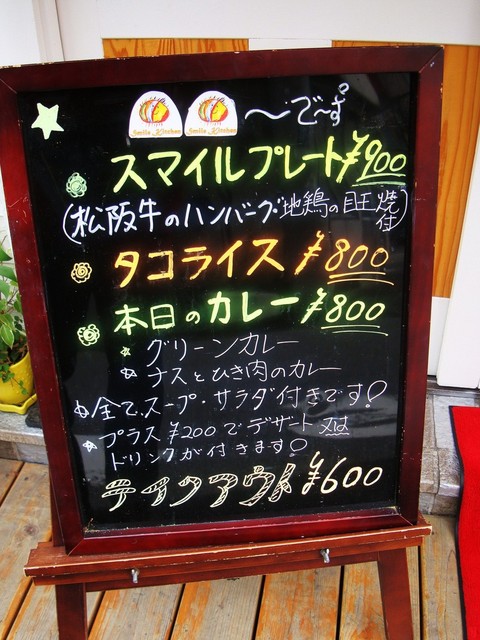 Smile Kitchen Smile Kitchen 〜で〜す
スマイルプレート ¥900
(松阪牛のハンバーグ 地鶏の目玉焼付)
タコライス ¥800
本日のカレー ¥800
グリーンカレー
ナスとひき肉のカレー
全て、スープ・サラダ付きです!
プラス¥200でデザート又は
ドリンクが付きます!
テイクアウト ¥600